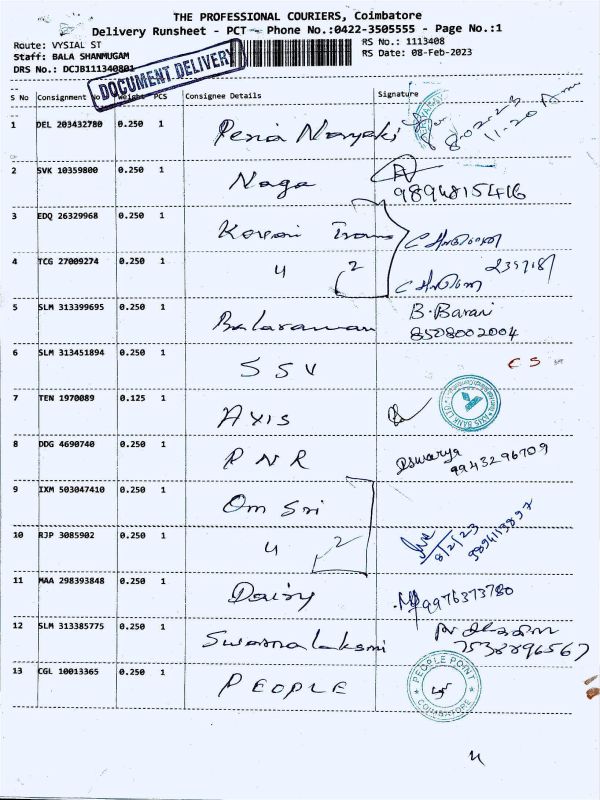 THE PROFESSIONAL COURIERS, Coimbatore
Delivery Runsheet - PCT - Phone No.:0422-3505555 - Page No.:1
Route: VYSIAL ST
RS No.: 1113408
Staff: BALA SHANMUGAM
RS Date: 08-Feb-2023
DRS No.: DCJB111340801
DOCUMENT DELIVERY
S No Consignment No Weight PCS Consignee Details Signature
1 DEL 203432780 0.250 1 Peria Nayaki
8.02.23
11.20 Am
2 SVK 10359800 0.250 1 Naga
9894815416
3 EDQ 26329968 0.250 1
4 TCG 27009274 0.250 1 " 2
5 SLM 313399695 0.250 1 Balaraman B. Barani
8508002004
6 SLM 313451894 0.250 1 SSV CS
7 TEN 1970089 0.125 1 AXIS
AXIS BANK LTD
8 DDG 4690740 0.250 1 PNR Iswarya
9943296709
9 IXM 503047410 0.250 1 Om Sri
10 RJP 3085902 0.250 1 " 2
8/2/23
9894113897
11 MAA 298393848 0.250 1 Daisy 9976373780
12 SLM 313385775 0.250 1 Swarnalaksmi
7538896567
13 CGL 10013365 0.250 1 PEOPLE
PEOPLE POINT
COIMBATORE